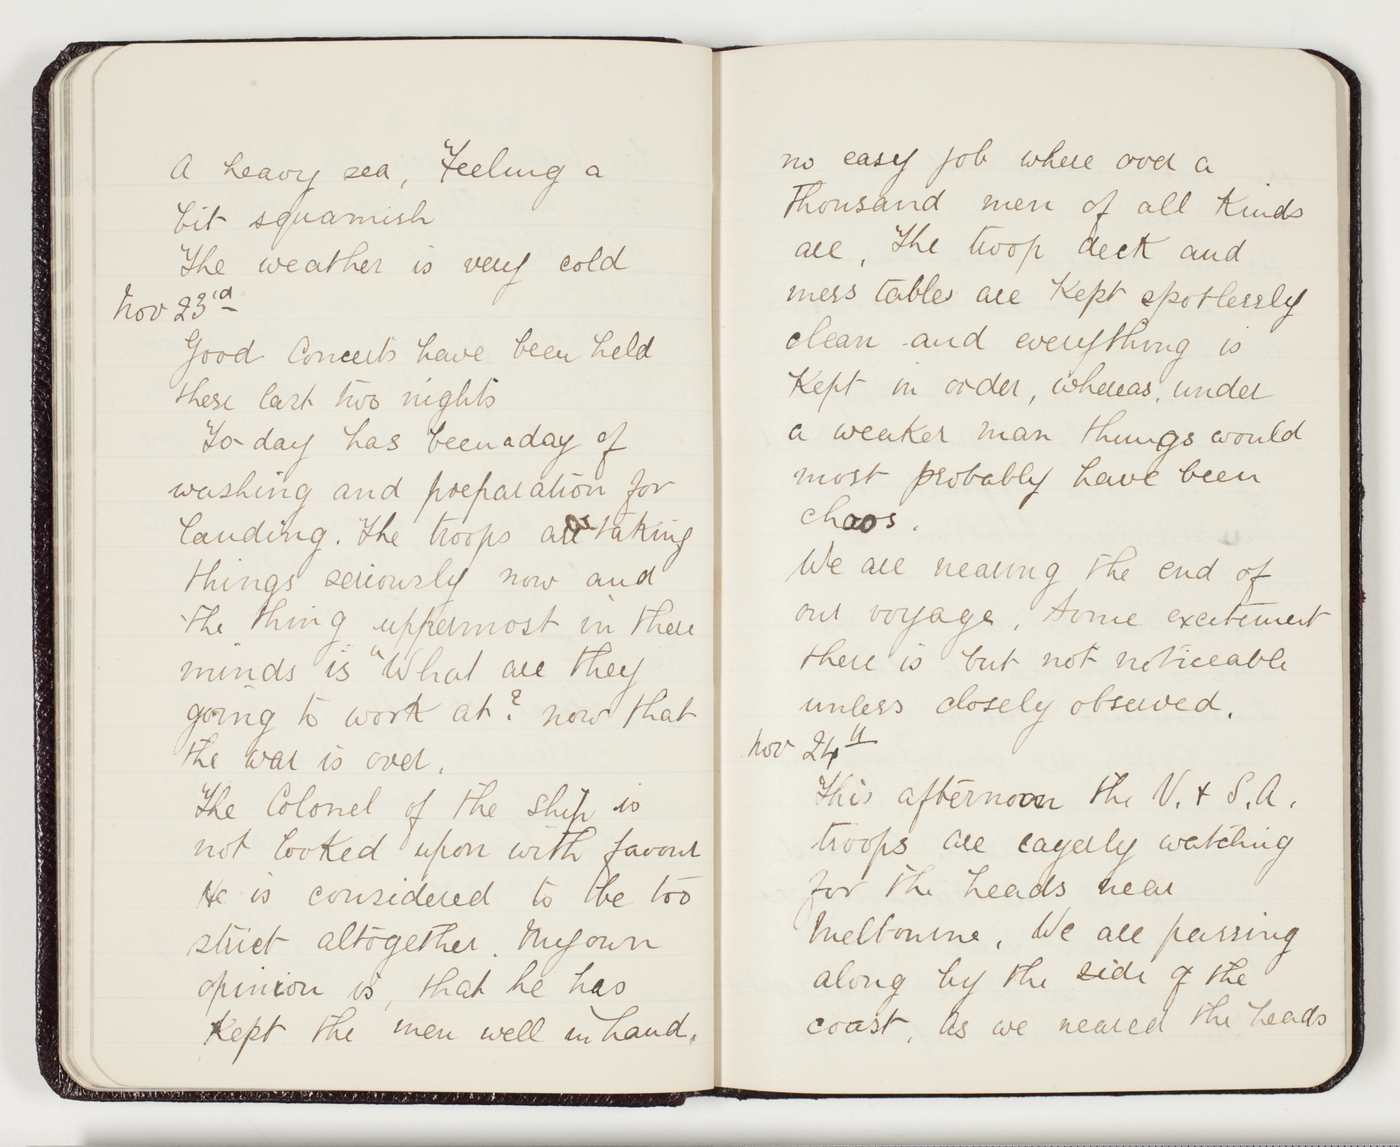 A heavy sea, Feeling a
bit squamish
The weather is very cold
Nov 23rd
Good Concerts have been held
these last two nights
To-day has been a day of
washing and preparation for
landing. The troops are taking
things seriously now and
the thing uppermost in there
minds is "What are they
going to work at? now that
the war is over.
The Colonel of the ship is
not looked upon with favour
He is considered to be too
strict altogether. My own
opinion is, that he has
kept the men well in hand.
no easy job where over a
thousand men of all kinds
are, The troop deck and
mess tables are kept spotlessly
clean and everything is
kept in order, whereas, under
a weaker man things would
most probably have been
chaos.
We are nearing the end of
our voyage, some excitement
there is but not noticeable
unless closely observed.
Nov 24th
This afternoon the V. & S.A.
troops are eagerly watching
for the heads near
Melbourne, We are passing
along by the side of the
coast, As we neared the heads